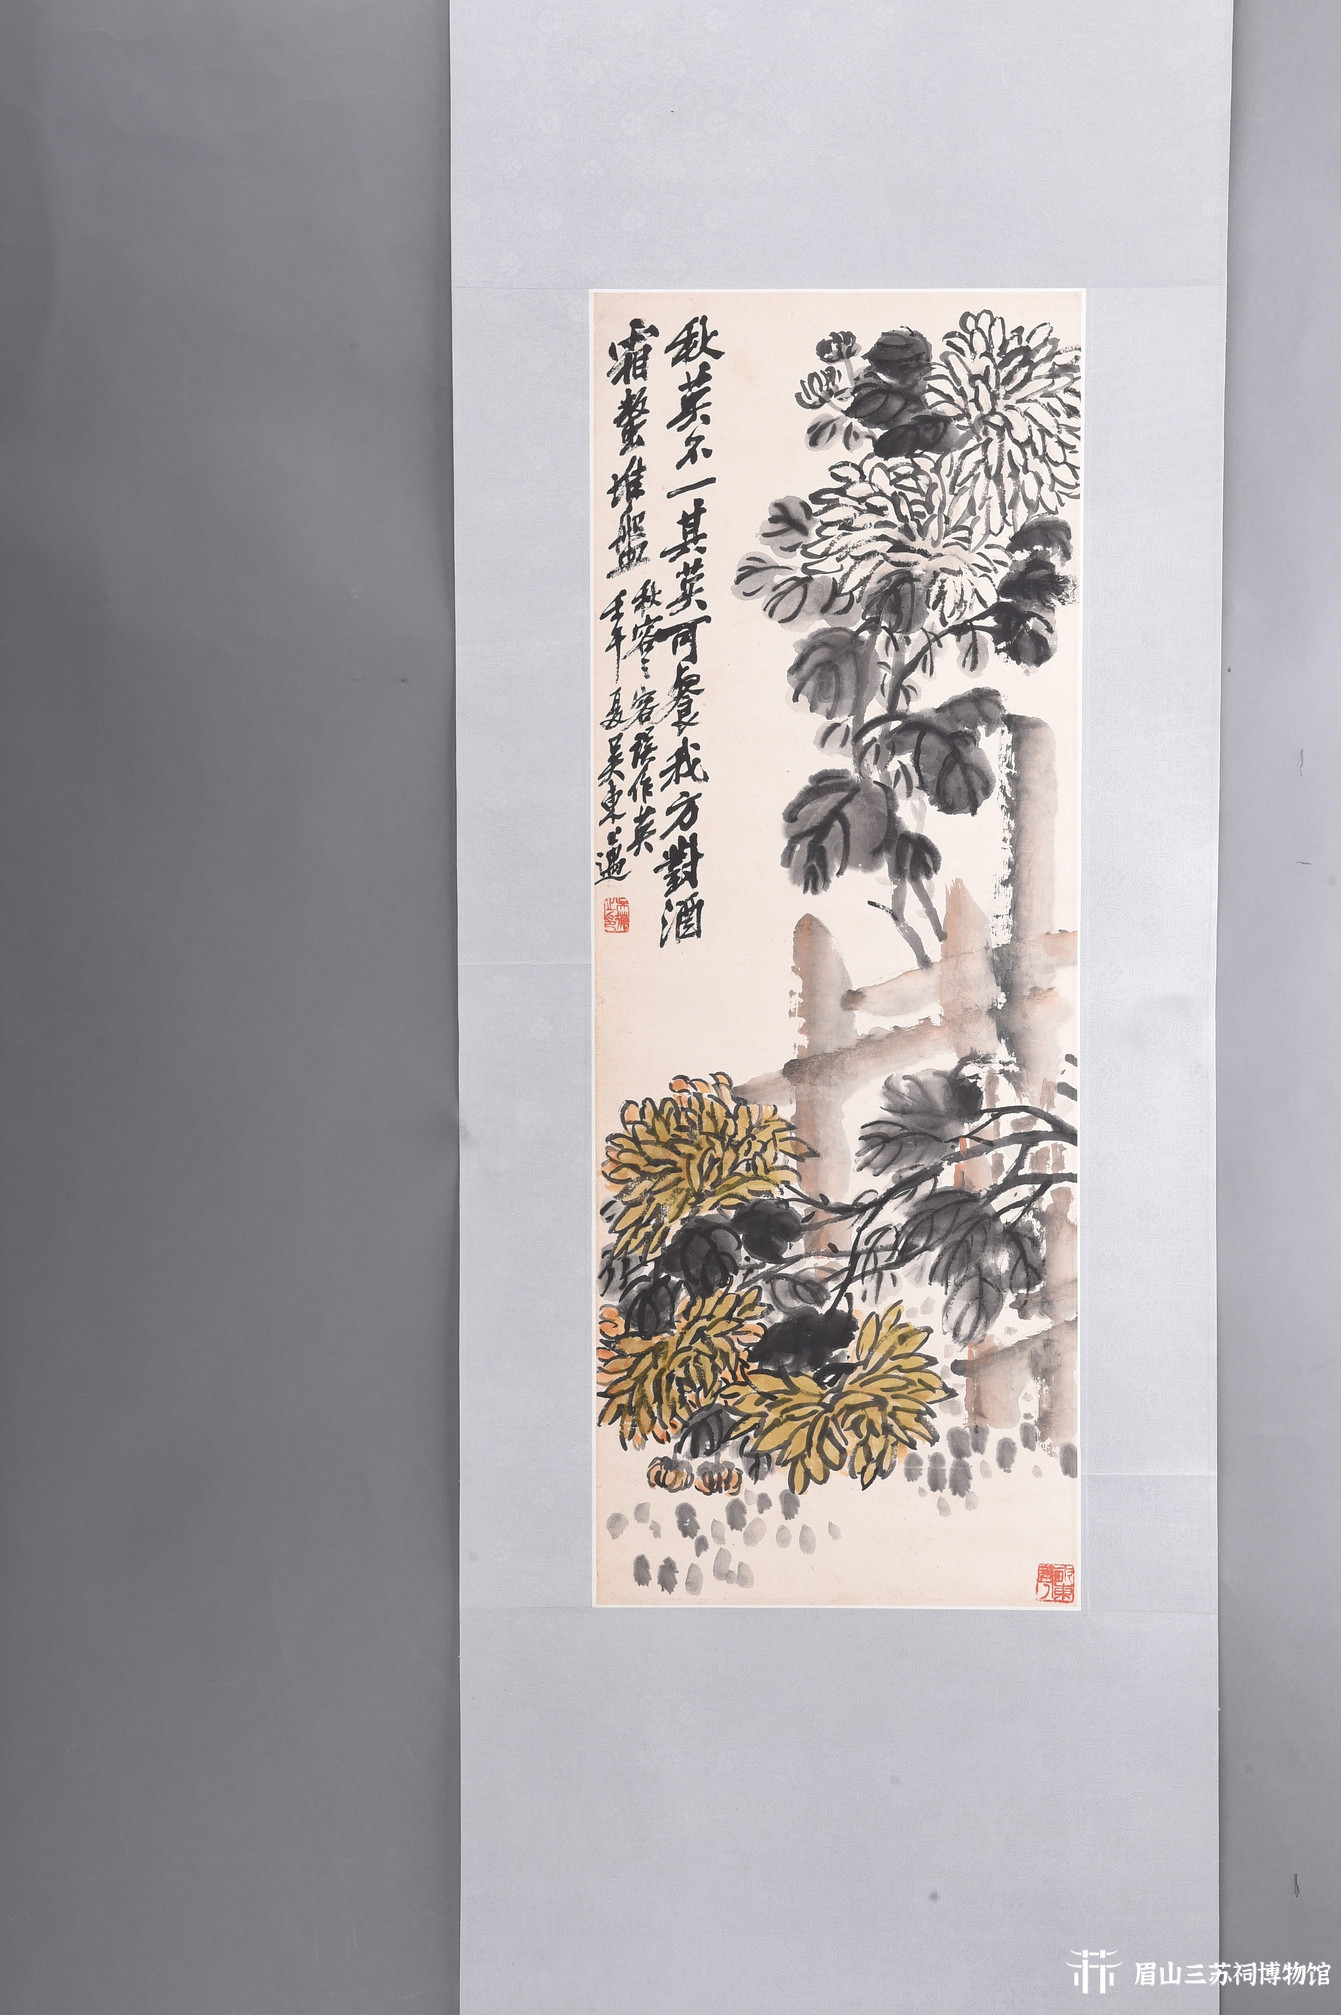 秋英不一其英可餐我方對酒
霜螯堆盤
秋容之容誤作英
壬午夏吳東邁
眉山三苏祠博物馆